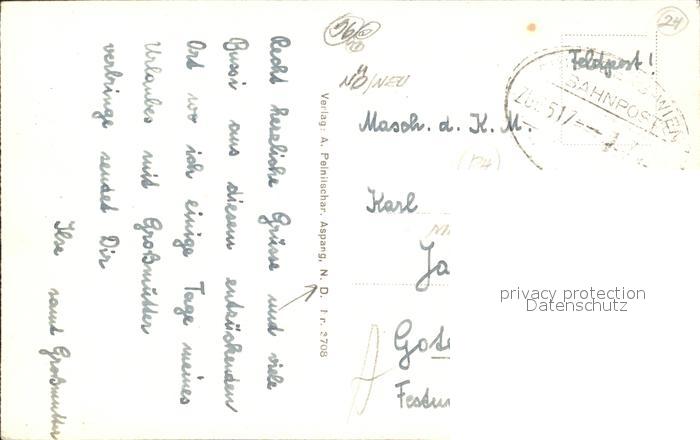 Recht herzliche Grüsse und viele
Bussi aus diesem entzückenden
Ort wo ich einige Tage meines
Urlaubes mit Großmutter
verbringe sendet Dir
Ilse samt Großmutter
Verlag: A. Pelnitschar, Aspang, N. D. Nr. 3708
96
NÖ/NEU
24
Feldpost!
WIEN
BAHNPOST
Zug 517
Masch. d. K. M.
Karl
Ja
Got
Festu
privacy protection
Datenschutz